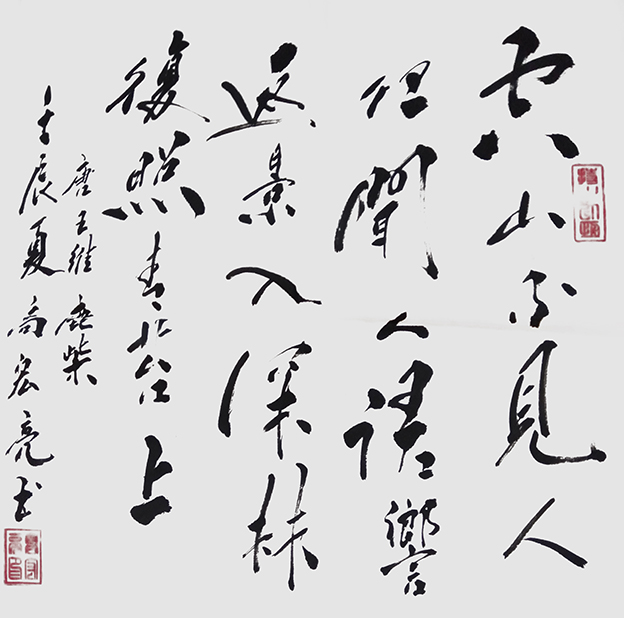 空山不見人
但聞人語響
返景入深林
復照青苔上
唐王維鹿柴
壬辰夏高宏亮书